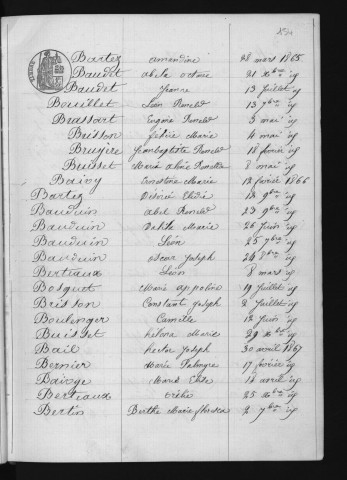 Bartez amandine 28 mars 1865
Baudet abel octave 21 Xbre id
Baudet Jeanne 13 Juillet id
Bouillet Léon 13 7bre id
Brassart Eugène 3 mai id
Brisson félicie Marie 4 mai id
Bruyère Jean baptiste 18 février id
Buisset Maria 8 mai id
Baivy Ernestine Marie 12 février 1866
Bartez Désiré Elidie 12 9bre id
Bauduin abel 23 9bre id
Bauduin Marie 26 Juin id
Bauduin Léon 25 7bre id
Bauduin oscar Joseph 24 8bre id
Berteaux Léon 8 mars id
Bosquet Marie appoline 19 Juillet id
Brisson Constant Joseph 2 Juillet id
Boulenger Camille 12 Juin id
Buisset héléna Marie 29 Xbre id
Bail hector Joseph 30 avril 1867
Bernier Marie Palmyre 17 février id
Baivge Marie 14 avril id
Berteaux 25 Xbre id
Bertin Berthe Marie floriska 2 7bre id